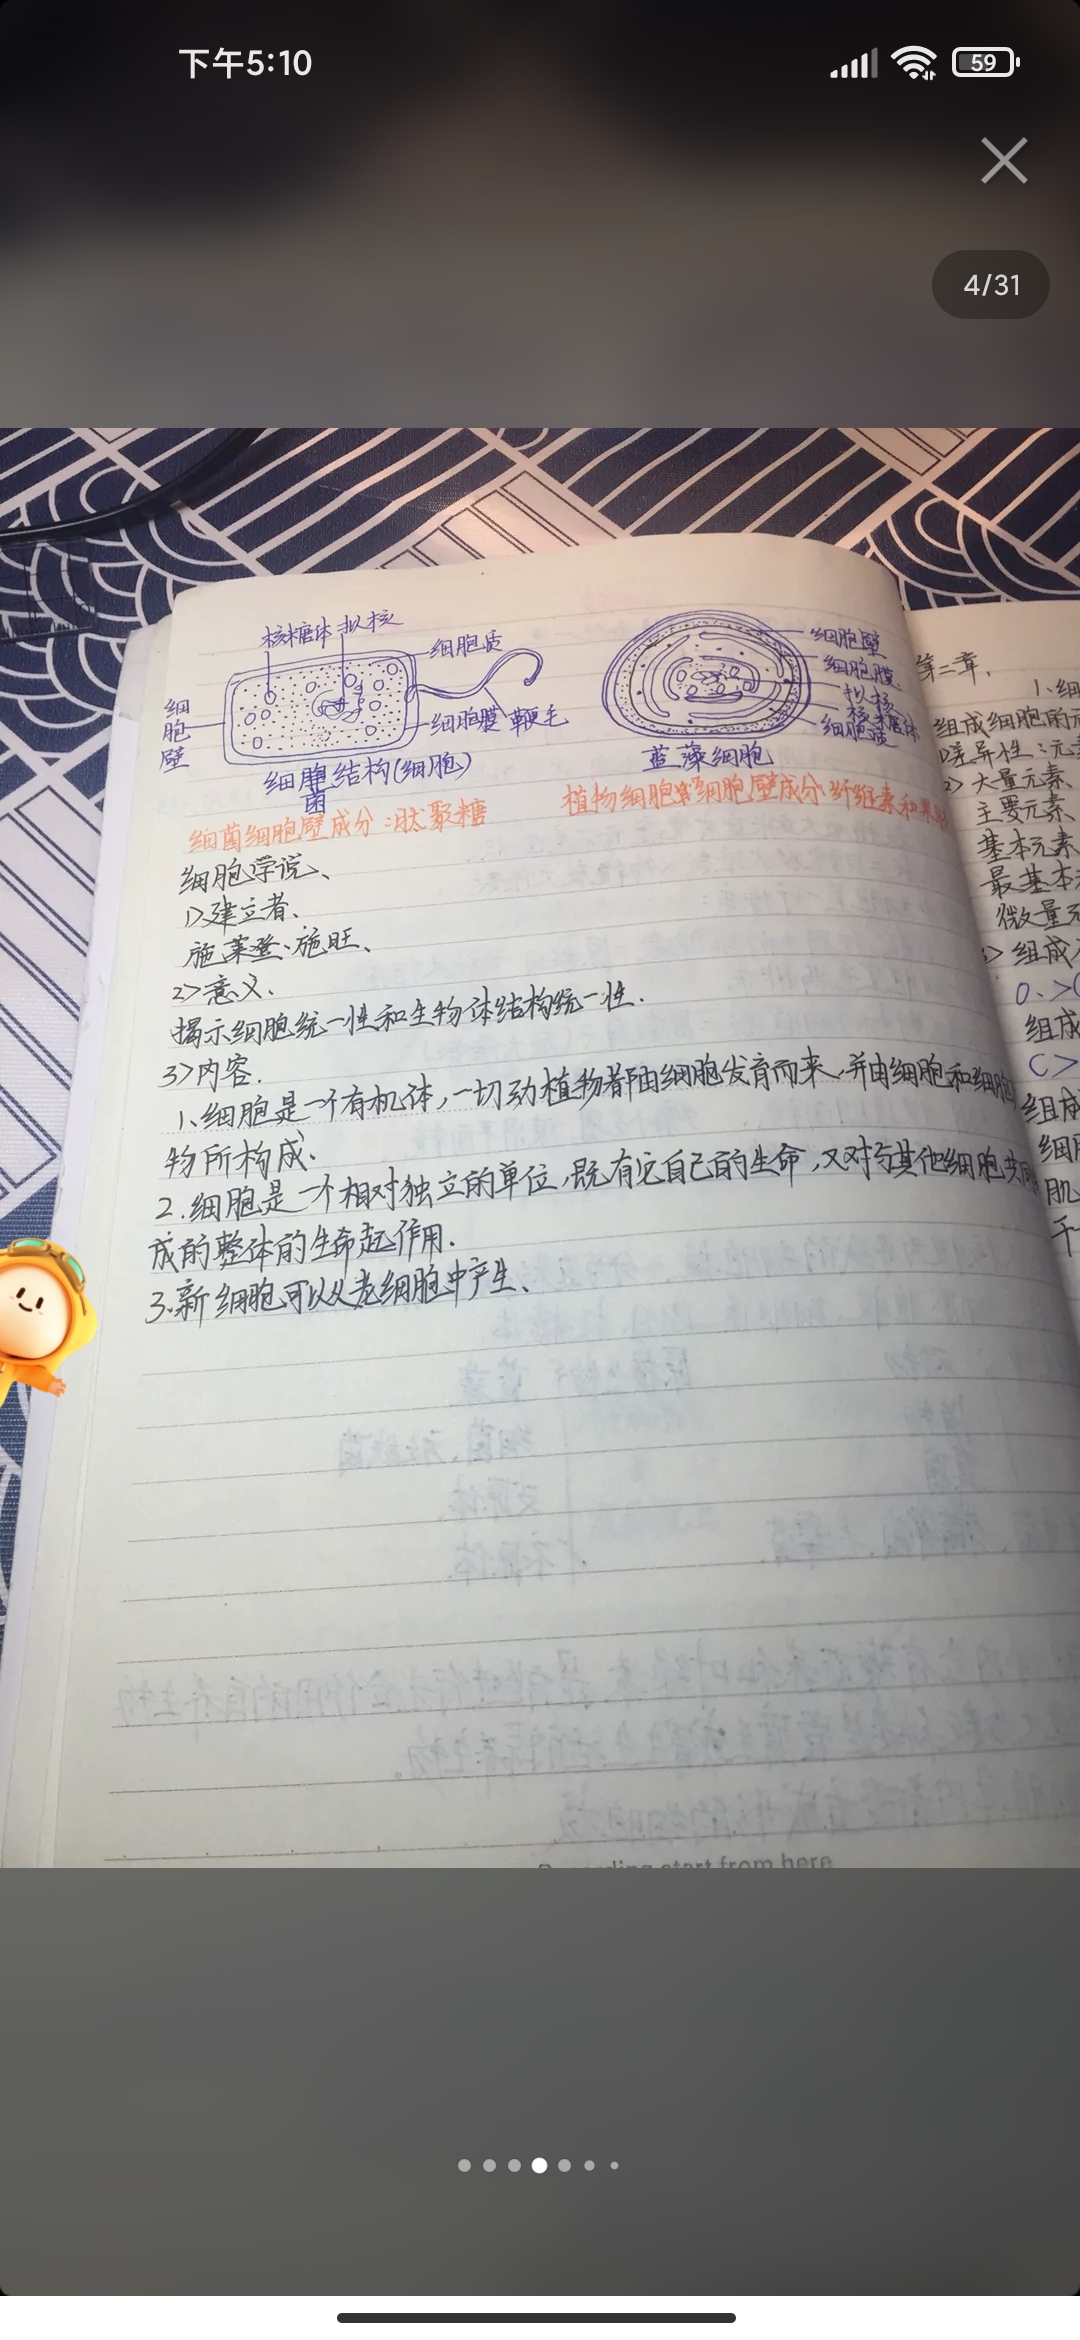 下午5:10
59
4/31
核糖体 拟核
细胞质
细胞壁
细胞膜 鞭毛
细胞结构(细胞)
菌
细胞壁
细胞膜
拟核
核糖体
细胞质
蓝藻细胞
细菌细胞壁成分:肽聚糖
植物细胞细胞壁成分:纤维素和果
细胞学说、
1>建立者、
施莱登、施旺、
2>意义.
揭示细胞统一性和生物体结构统一性.
3>内容.
1、细胞是一个有机体,一切动植物都由细胞发育而来,并由细胞和细胞
物所构成、
2.细胞是一个相对独立的单位,既有它自己的生命,又对与其他细胞共同
成的整体的生命起作用.
3.新细胞可以从老细胞中产生、
第二章.
1、细
组成细胞的元
差异性:元素
2>大量元素
主要元素
基本元素
最基本
微量元
组成
O.>C
组成
C>
组成
细胞
肌
干
start from here